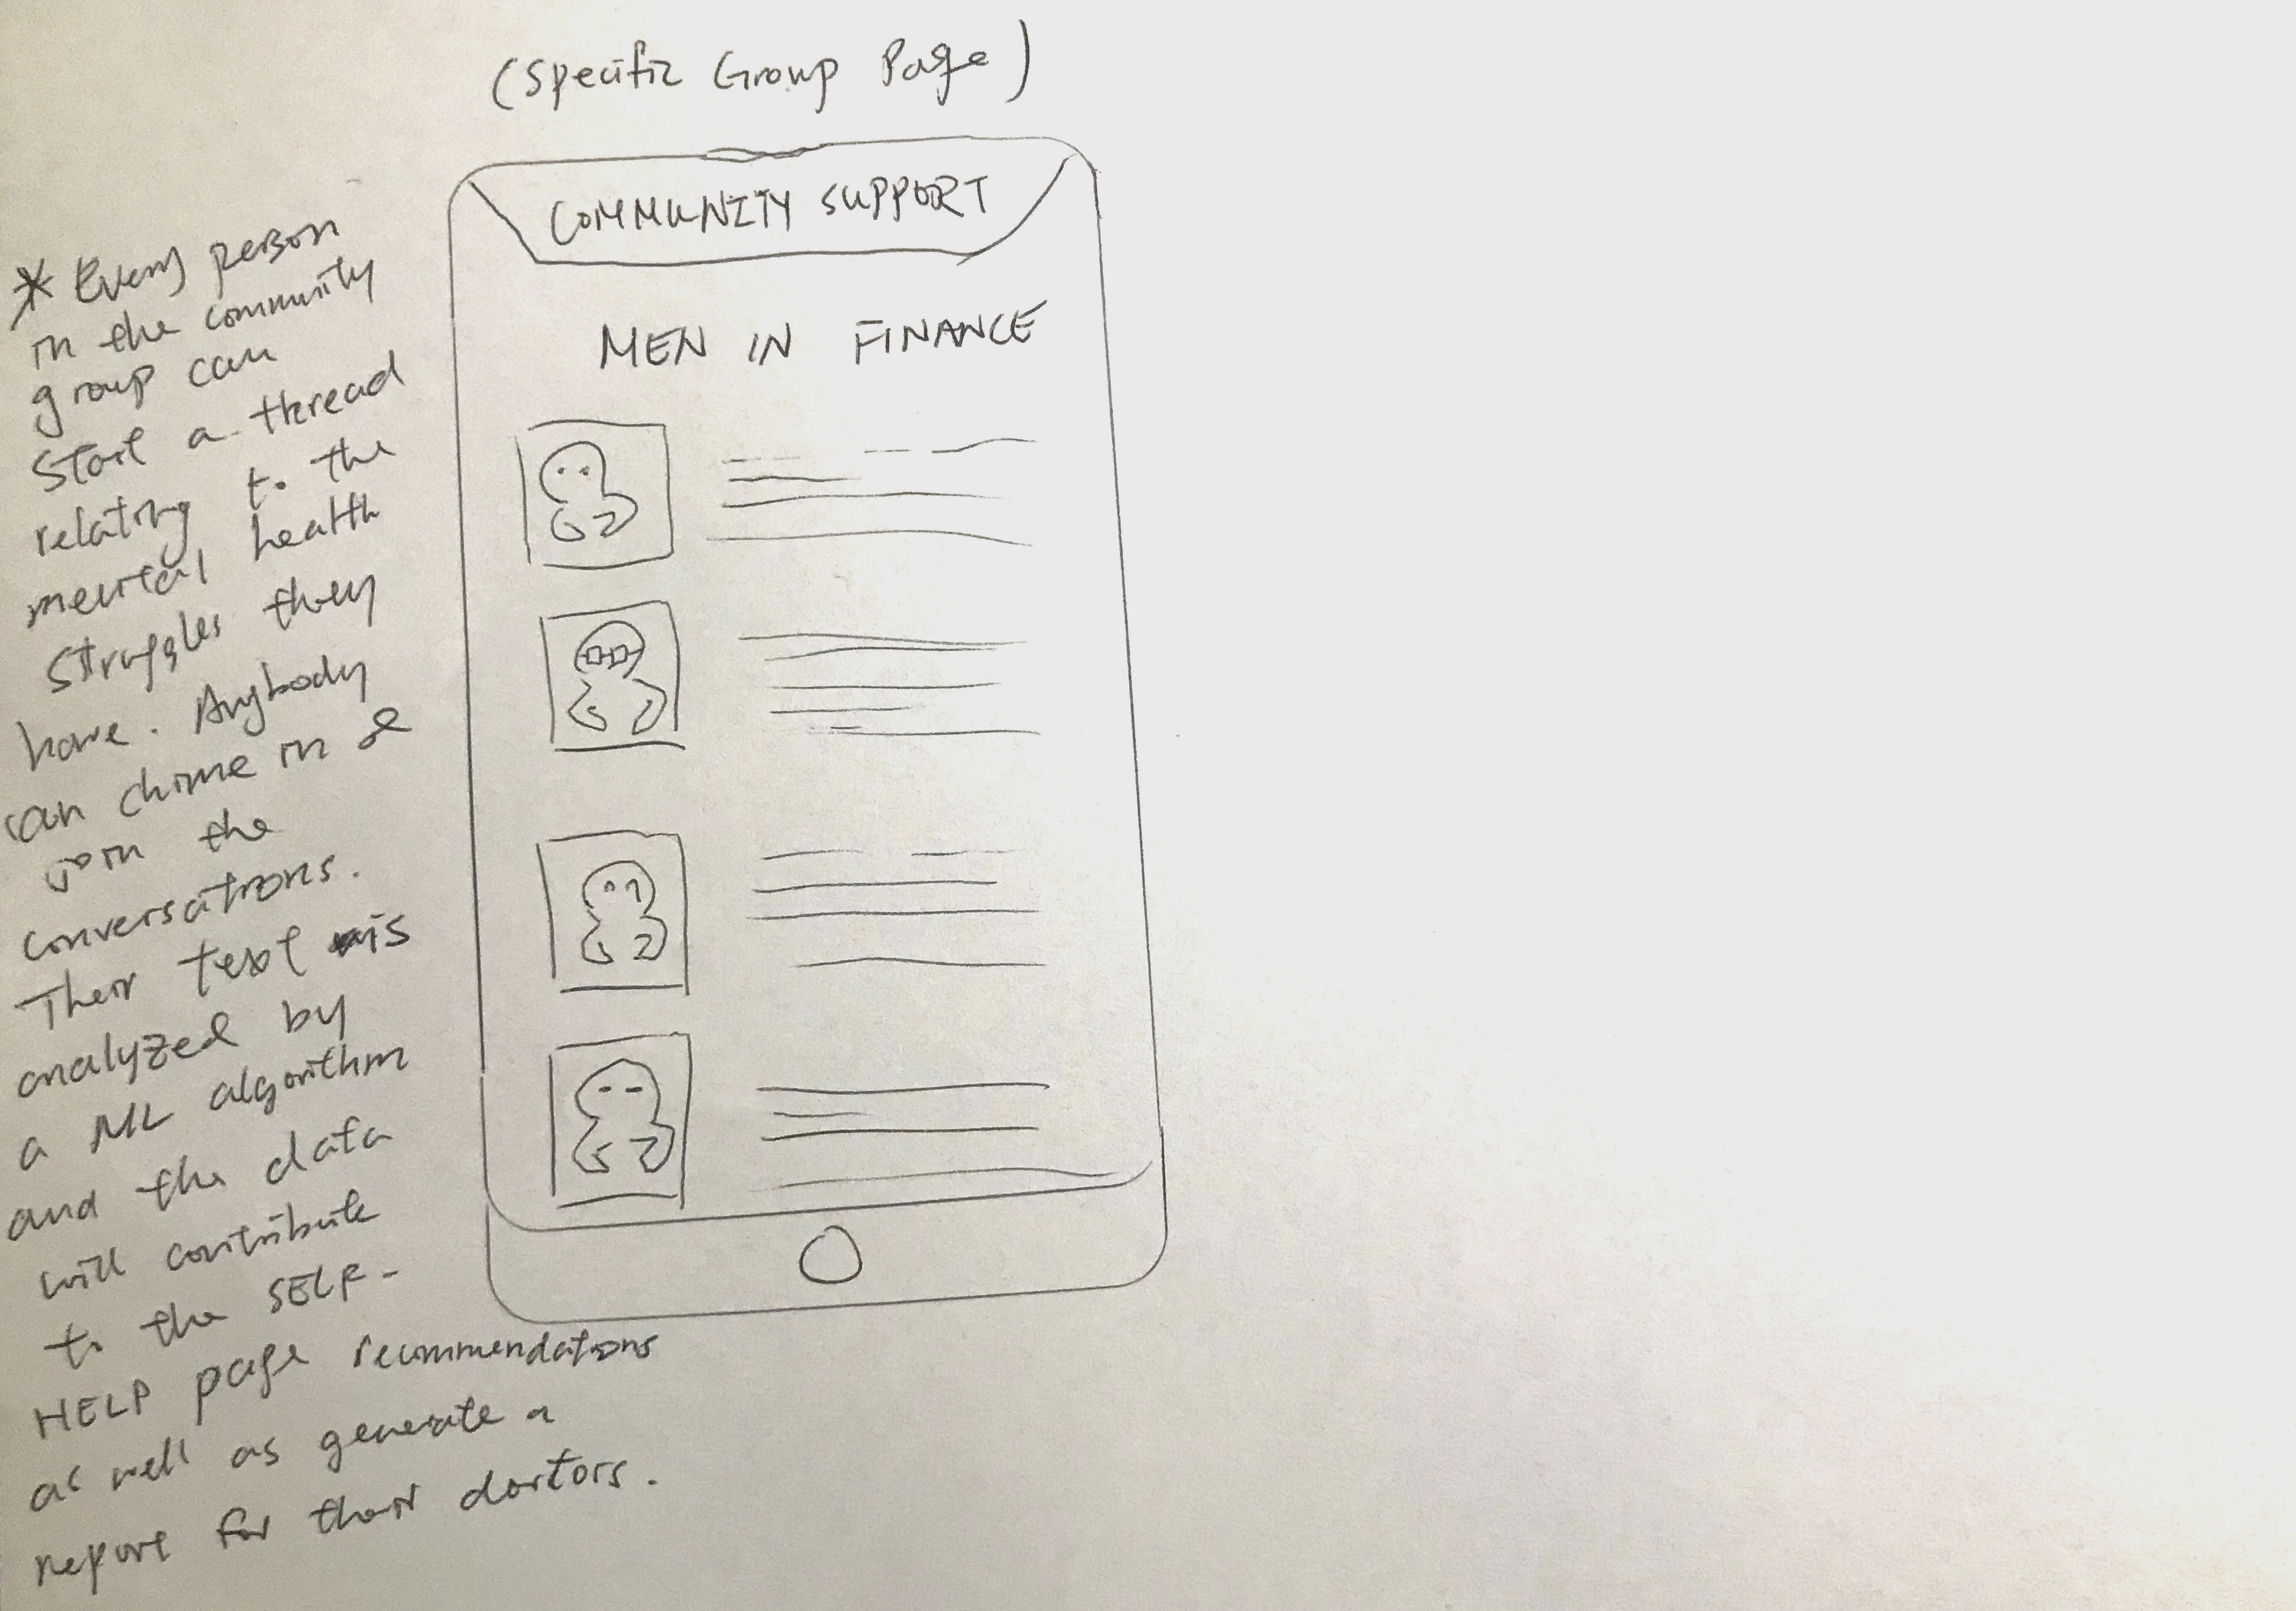 (Specific Group Page)
COMMUNITY SUPPORT
MEN IN FINANCE
* Every person
in the community
group can
start a thread
relating to the
mental health
struggles they
have. Anybody
can chime in &
join the
conversations.
Their text is
analyzed by
a ML algorithm
and the data
will contribute
to the SELF-
HELP page recommendations
as well as generate a
report for their doctors.